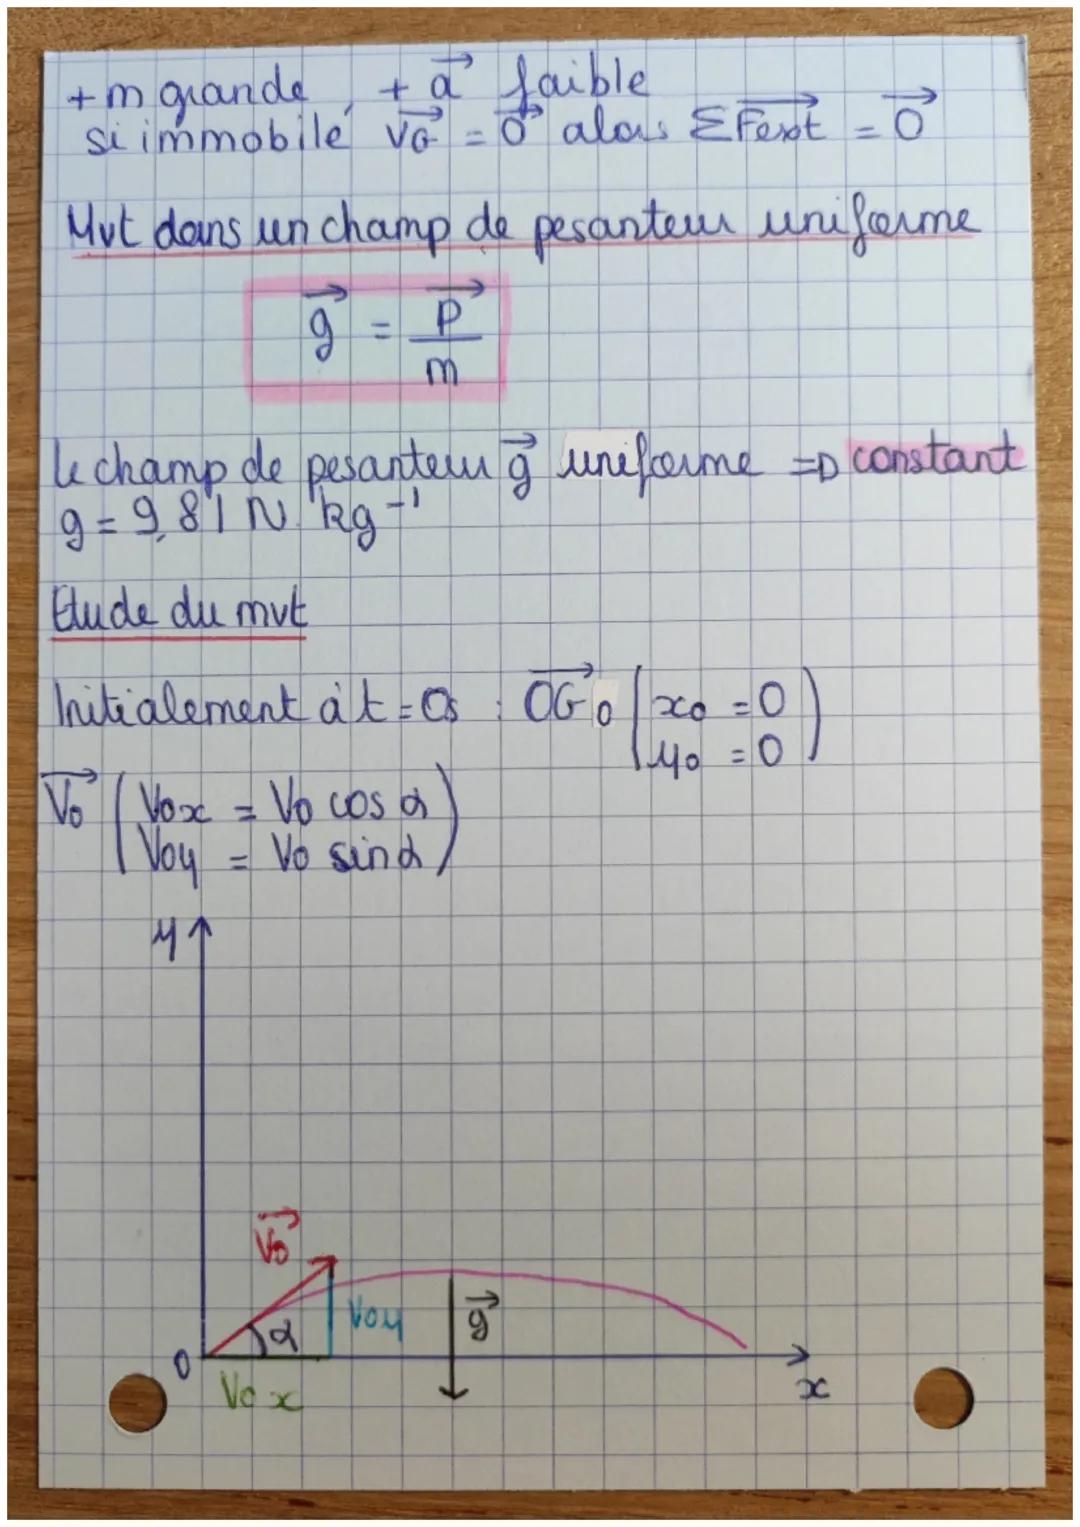 + m grande, + a⃗ faible
si immobile v⃗G = 0⃗ alors ΣF⃗ext = 0⃗
Mvt dans un champ de pesanteur uniforme
g⃗ = P⃗ / m
le champ de pesanteur g⃗ uniforme => constant
g = 9,81 N. kg⁻¹
Etude du mvt
Initialement à t = 0s : OG⃗₀ ( x₀ = 0
y₀ = 0 )
V₀⃗ ( V₀x = V₀ cos α
V₀y = V₀ sin α )
y
V₀⃗
α
V₀y
g⃗
0
V₀x
x